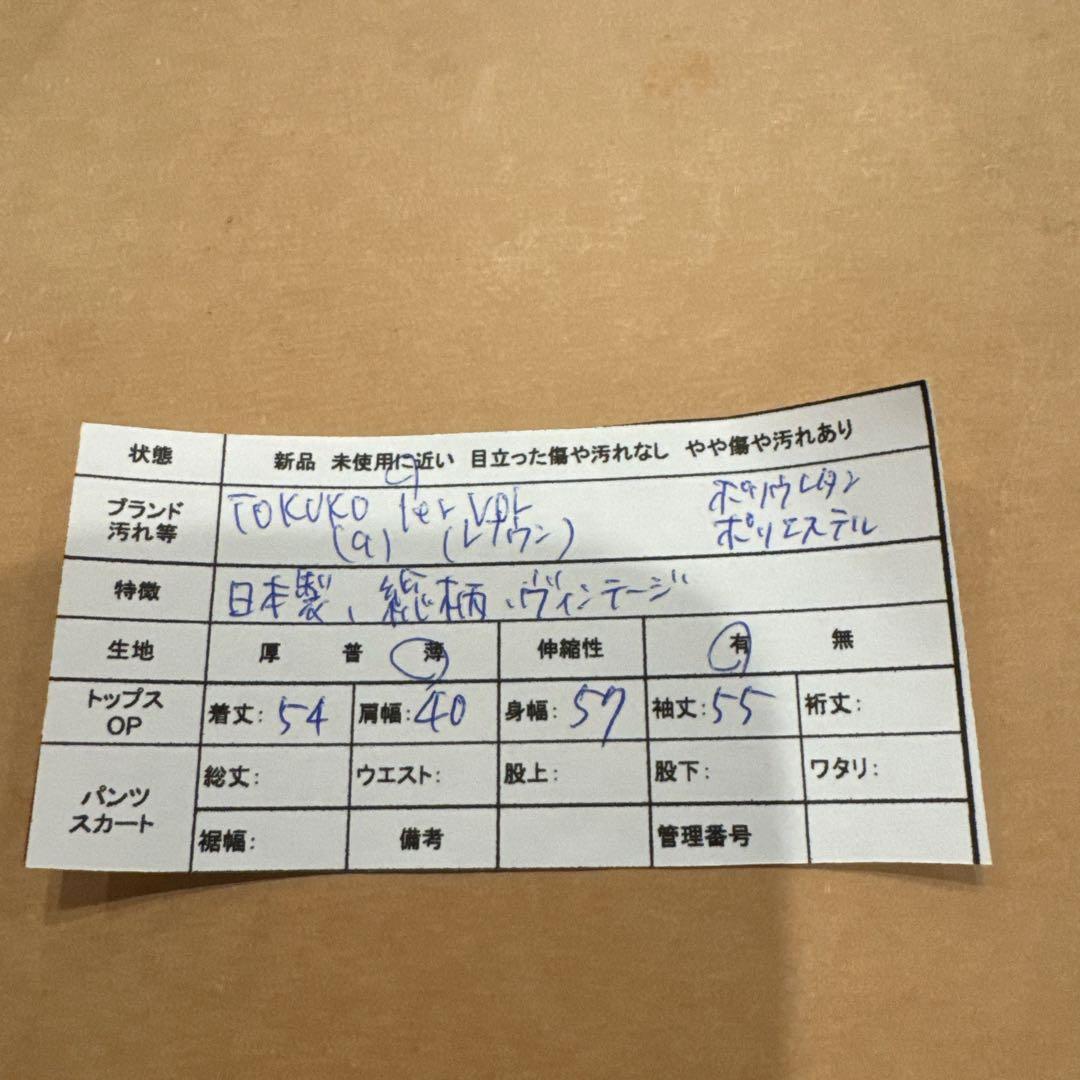 状態 新品 未使用に近い 目立った傷や汚れなし やや傷や汚れあり
ブランド 汚れ等 TOKUKO 1er VOL ポリウレタン
(9) (レナウン) ポリエステル
特徴 日本製、総柄、ヴィンテージ
生地 厚 普 薄 伸縮性 有 無
トップス OP 着丈: 54 肩幅: 40 身幅: 57 袖丈: 55 裄丈:
パンツ スカート 総丈: ウエスト: 股上: 股下: ワタリ:
裾幅: 備考 管理番号